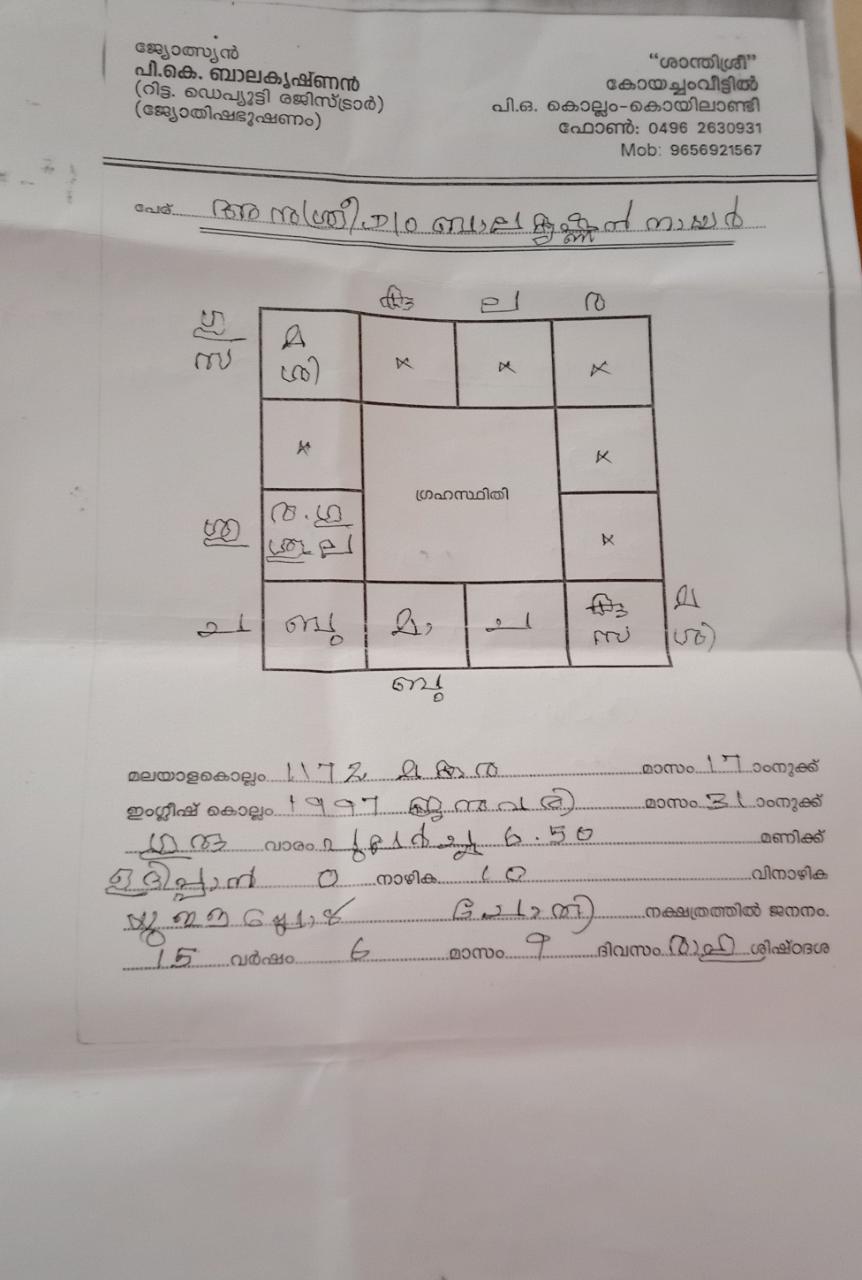 ജ്യോത്സ്യൻ
പി.കെ. ബാലകൃഷ്ണൻ
(റിട്ട. ഡെപ്യൂട്ടി രജിസ്ട്രാർ)
(ജ്യോതിഷഭൂഷണം)
“ശാന്തിശ്രീ”
കോയച്ചംവീട്ടിൽ
പി.ഒ. കൊല്ലം-കൊയിലാണ്ടി
ഫോൺ: 0496 2630931
Mob: 9656921567
പേര് ബാലകൃഷ്ണൻ നായർ
ല ര
ഗു
സ
മ
ശി
x x x
x x
ഗ്രഹസ്ഥിതി
ശു
ര. ഗു
ശു ല
x
ച ബു മാ ച
സ
മ
ശി
ബു
മലയാളകൊല്ലം 1172 മകര മാസം 17 ാംനുക്ക്
ഇംഗ്ലീഷ് കൊല്ലം 1997 ജനുവരി മാസം 31 ാംനുക്ക്
ഗുരു വാരം പുലർച്ച 6.50 മണിക്ക്
ഉദിപ്പാൻ 0 നാഴിക 10 വിനാഴിക
ചോതി നക്ഷത്രത്തിൽ ജനനം.
15 വർഷം 6 മാസം 9 ദിവസം രാഹു ശിഷ്ടദശ